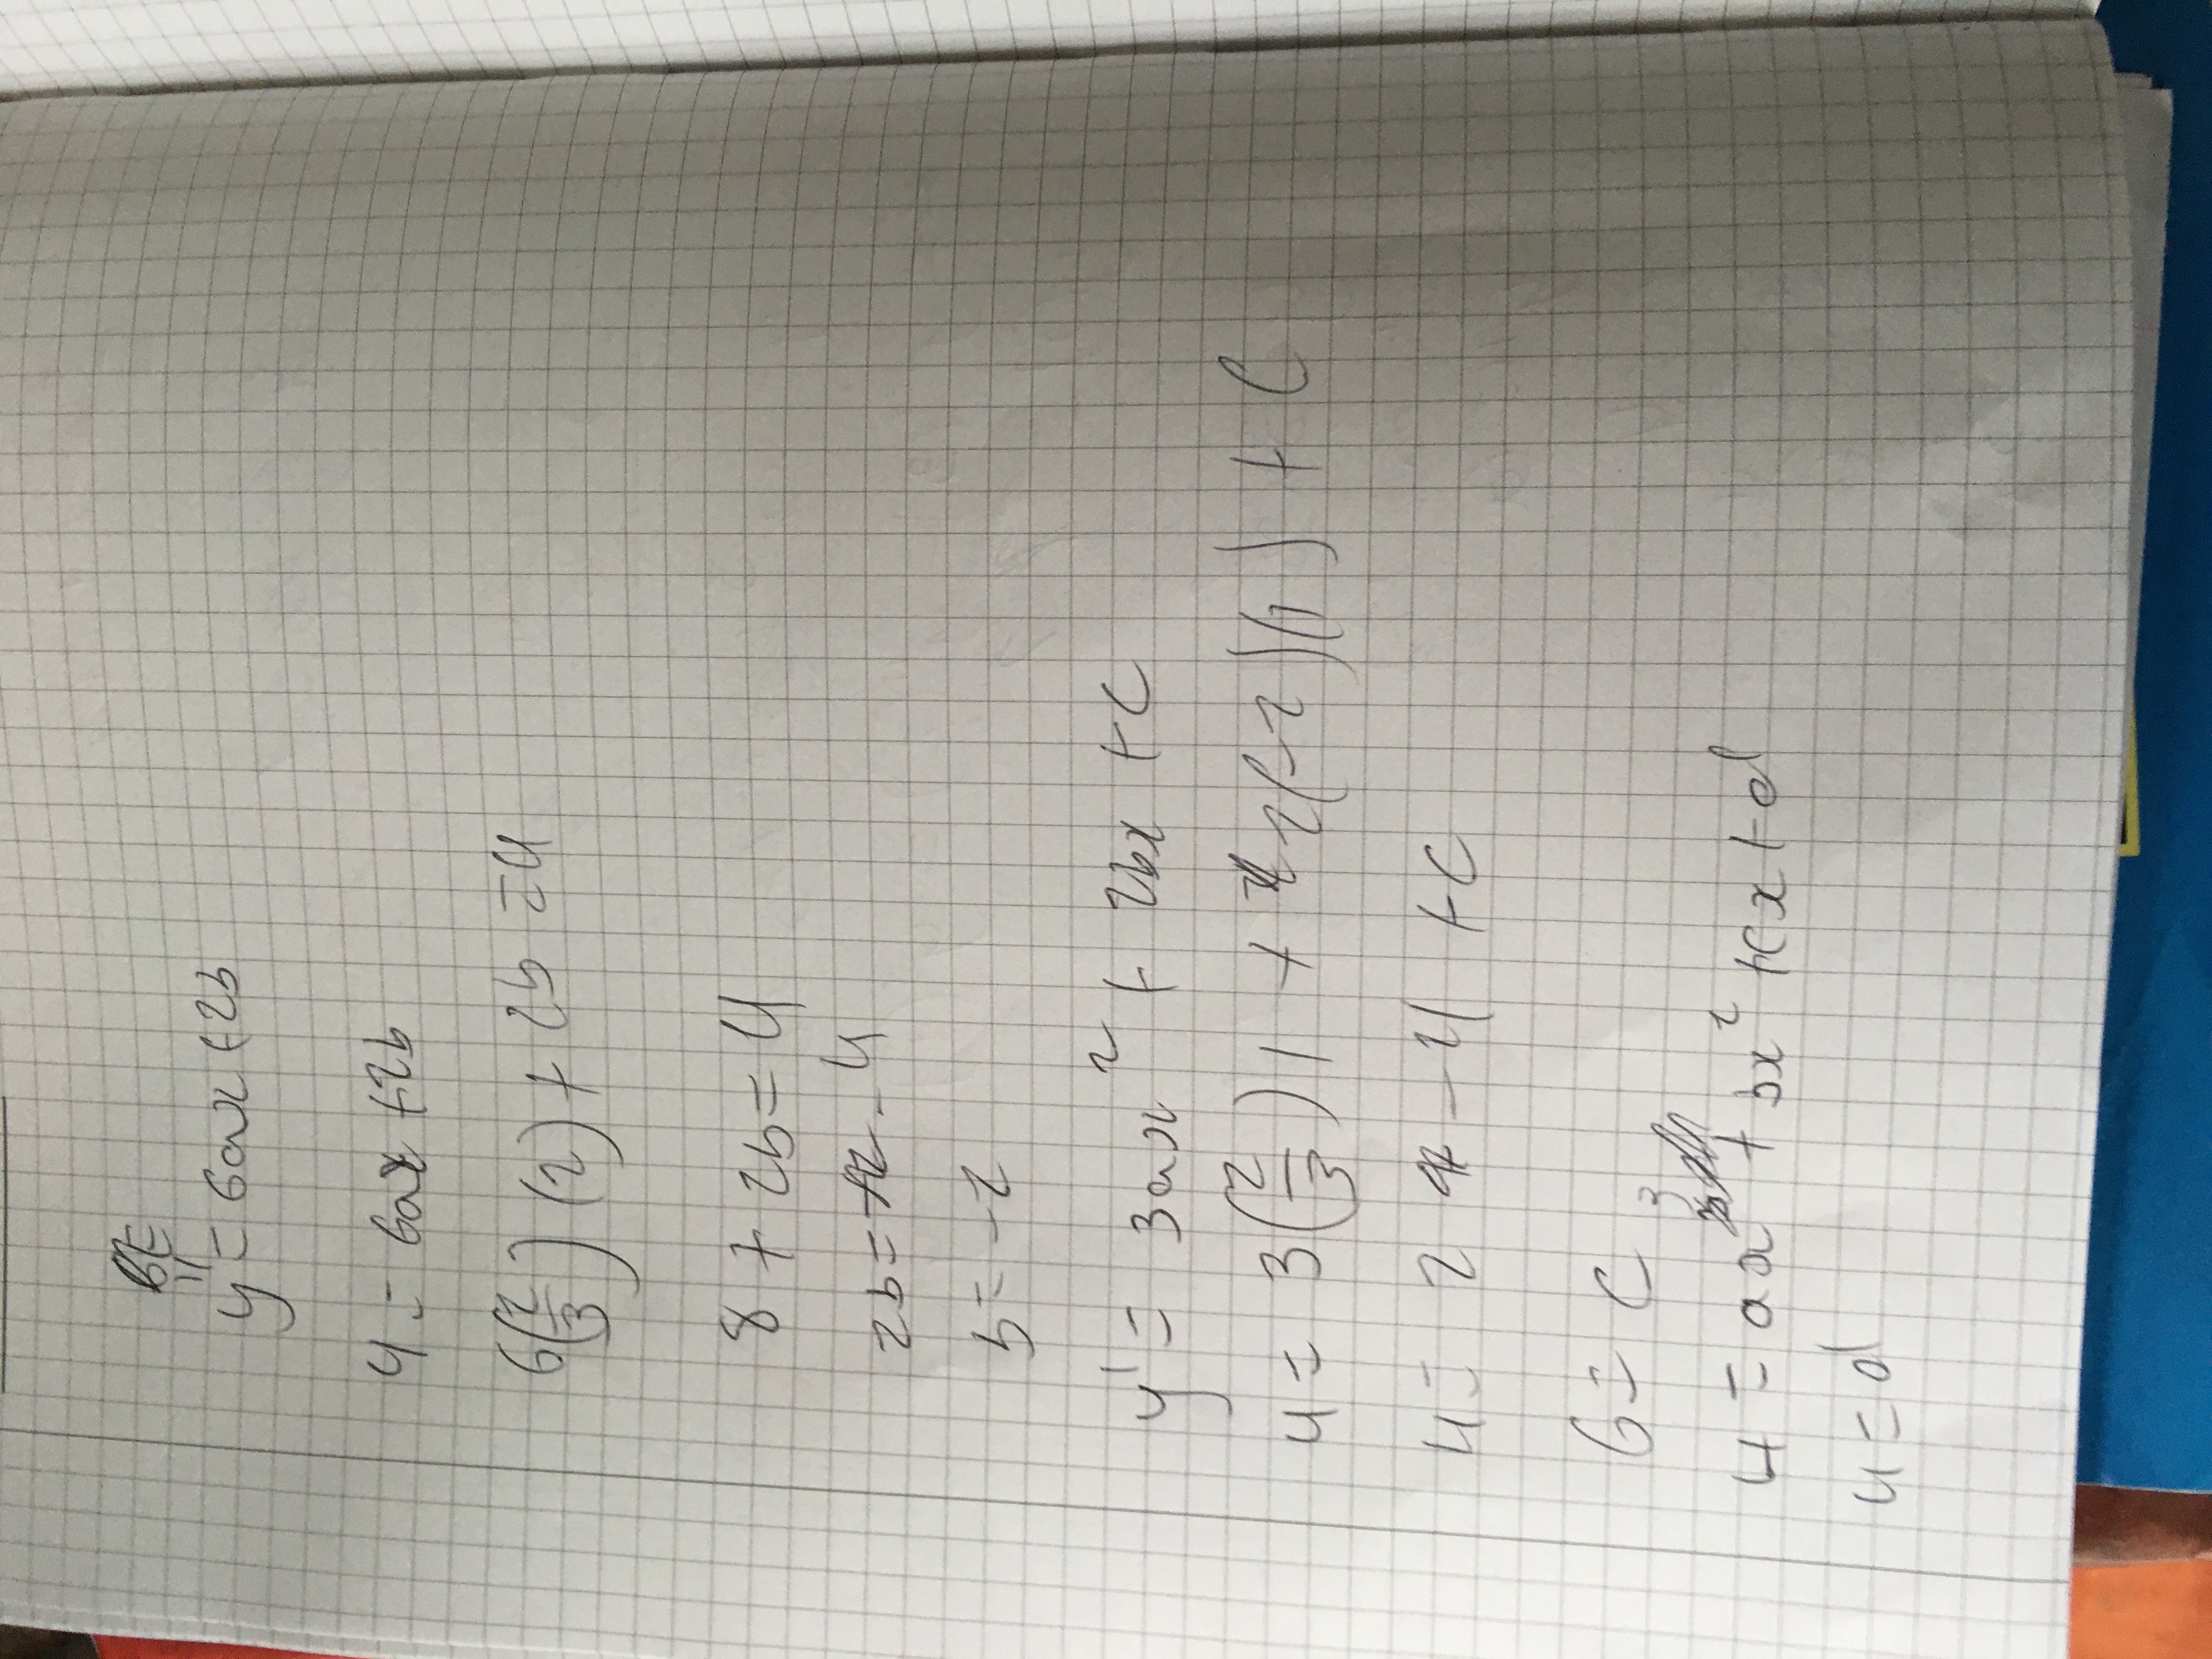 y'' = 6ax + 2b
4 = 6ax + 2b
6(2/3)(2) + 2b = 4
8 + 2b = 4
2b = -4
b = -2
y' = 3ax² + 2bx + c
4 = 3(2/3)1 + 2(-2)(1) + C
4 = 2 - 4 + C
6 = C
4 = ax³ + bx² + cx + d
4 = d